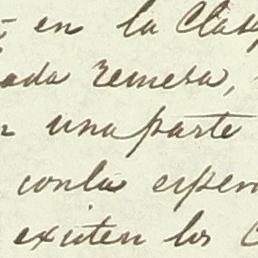 en la Clas
ada remesa,
n una parte
con la esper
existen los C